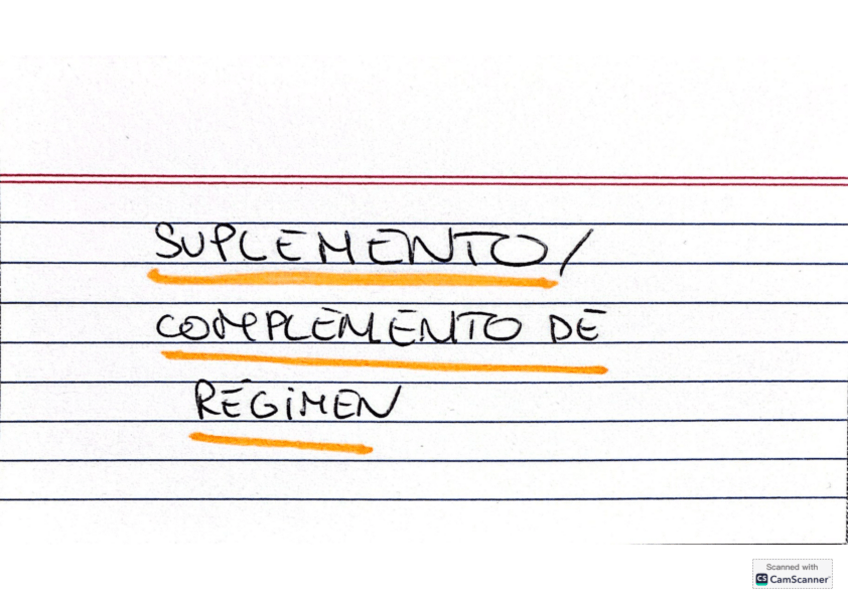 SUPLEMENTO/
COMPLEMENTO DE
RÉGIMEN
Scanned with
CS CamScanner